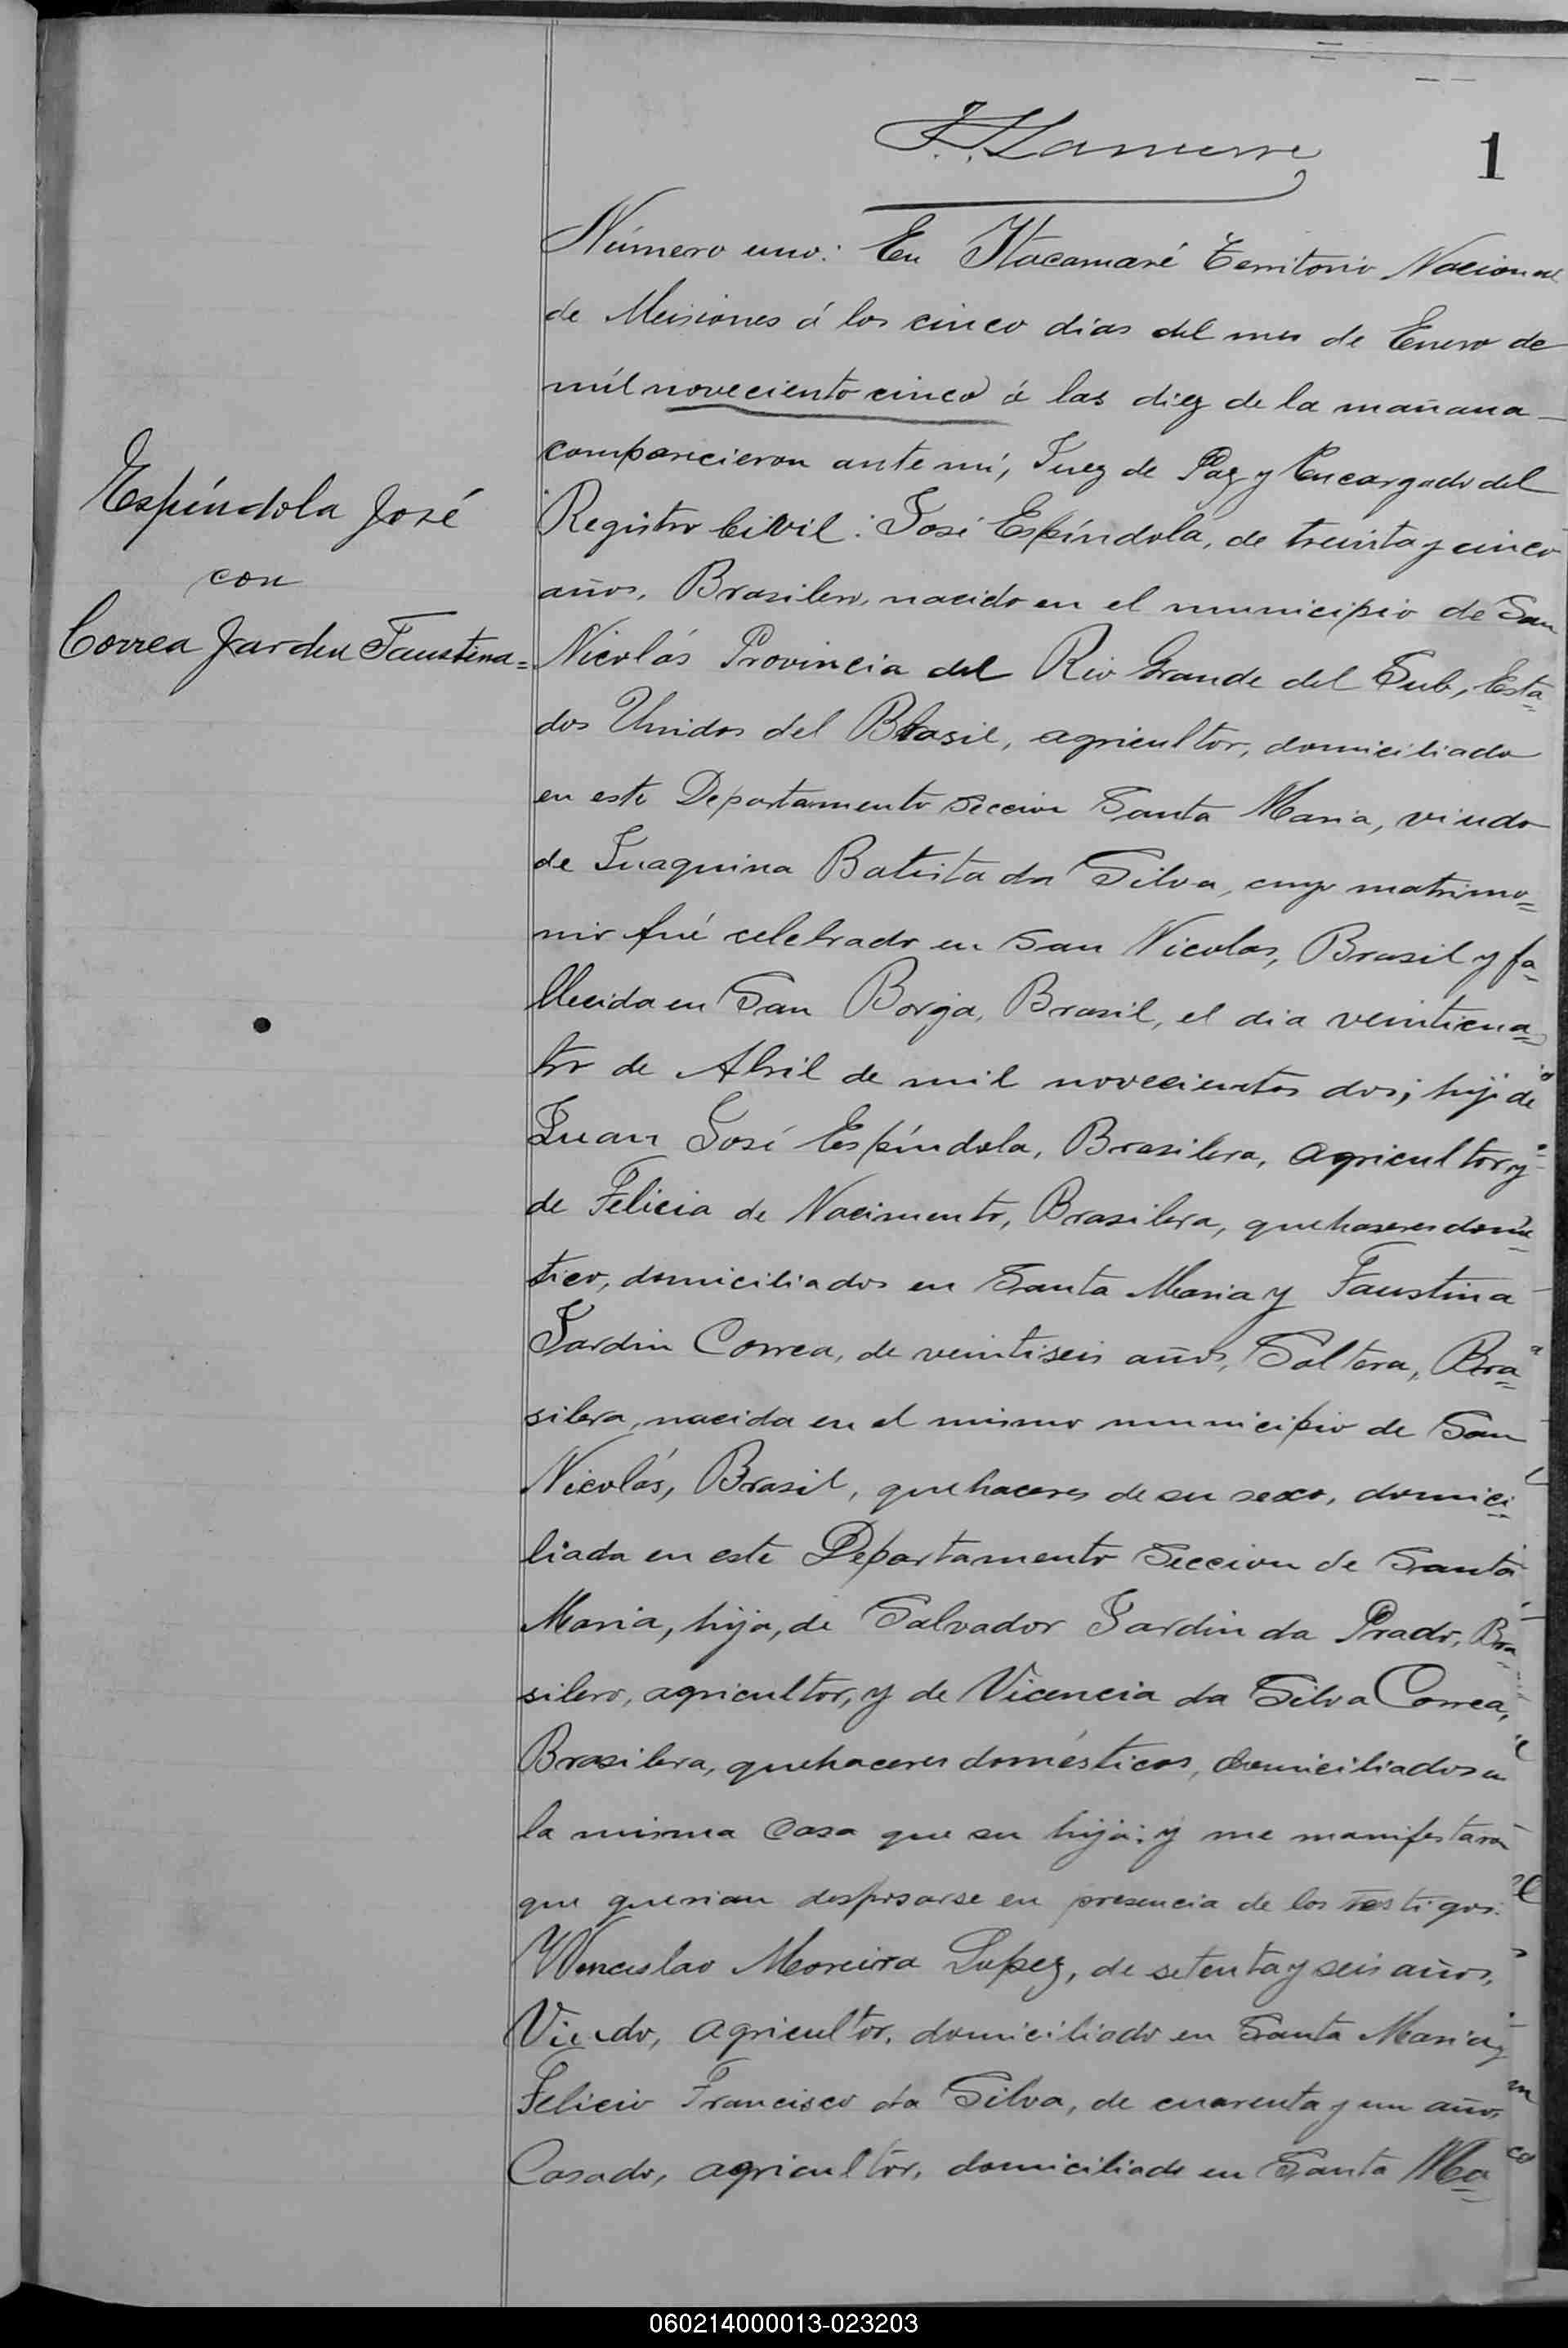 1
Número uno: En Itacamaré Territorio Nacional
de Misiones á los cinco dias del mes de Enero de
mil noveciento cinco á las diez de la mañana
comparecieron ante mi, Juez de Paz y Encargado del
Registro Civil: José Espíndola, de treinta y cinco
años, Brasilero, nacido en el municipio de San
Nicolás Provincia del Rio Grande del Sub, Esta-
dos Unidos del Brasil, agricultor, domiciliado
en este Departamento Seccion Santa Maria, viudo
de Juaquina Batista da Silva, cuyo matrimo=
nio fué celebrado en San Nicolas, Brasil y fa=
llecida en San Borja, Brasil, el dia veinticua=
tro de Abril de mil novecientos dos; hijo de
Juan José Espíndola, Brasilera, agricultor, y
de Felicia de Nacimento, Brasilera, quehaseres domes=
tico, domiciliados en Santa Maria y Faustina
Jardin Correa, de veintiseis años, Soltera, Bra=
silera, nacida en el mismo municipio de San
Nicolás, Brasil, quehaceres de su sexo, domici=
liada en este Departamento Seccion de Santa
Maria, hija, de Salvador Jardin da Prado, Bra=
silero, agricultor, y de Vicencia da Silva Correa,
Brasilera, quehaceres domésticos, domiciliados en
la misma Casa que su hija: y me manifestaron
que querian desposarse en presencia de los testigos:
Wenceslao Moreira Lopez, de setenta y seis años,
Viudo, agricultor, domiciliado en Santa Maria y
Felicio Francisco da Silva, de cuarenta y un años
Casado, agricultor, domiciliado en Santa Ma=
Espíndola José
con
Correa Jardin Faustina=
060214000013-023203